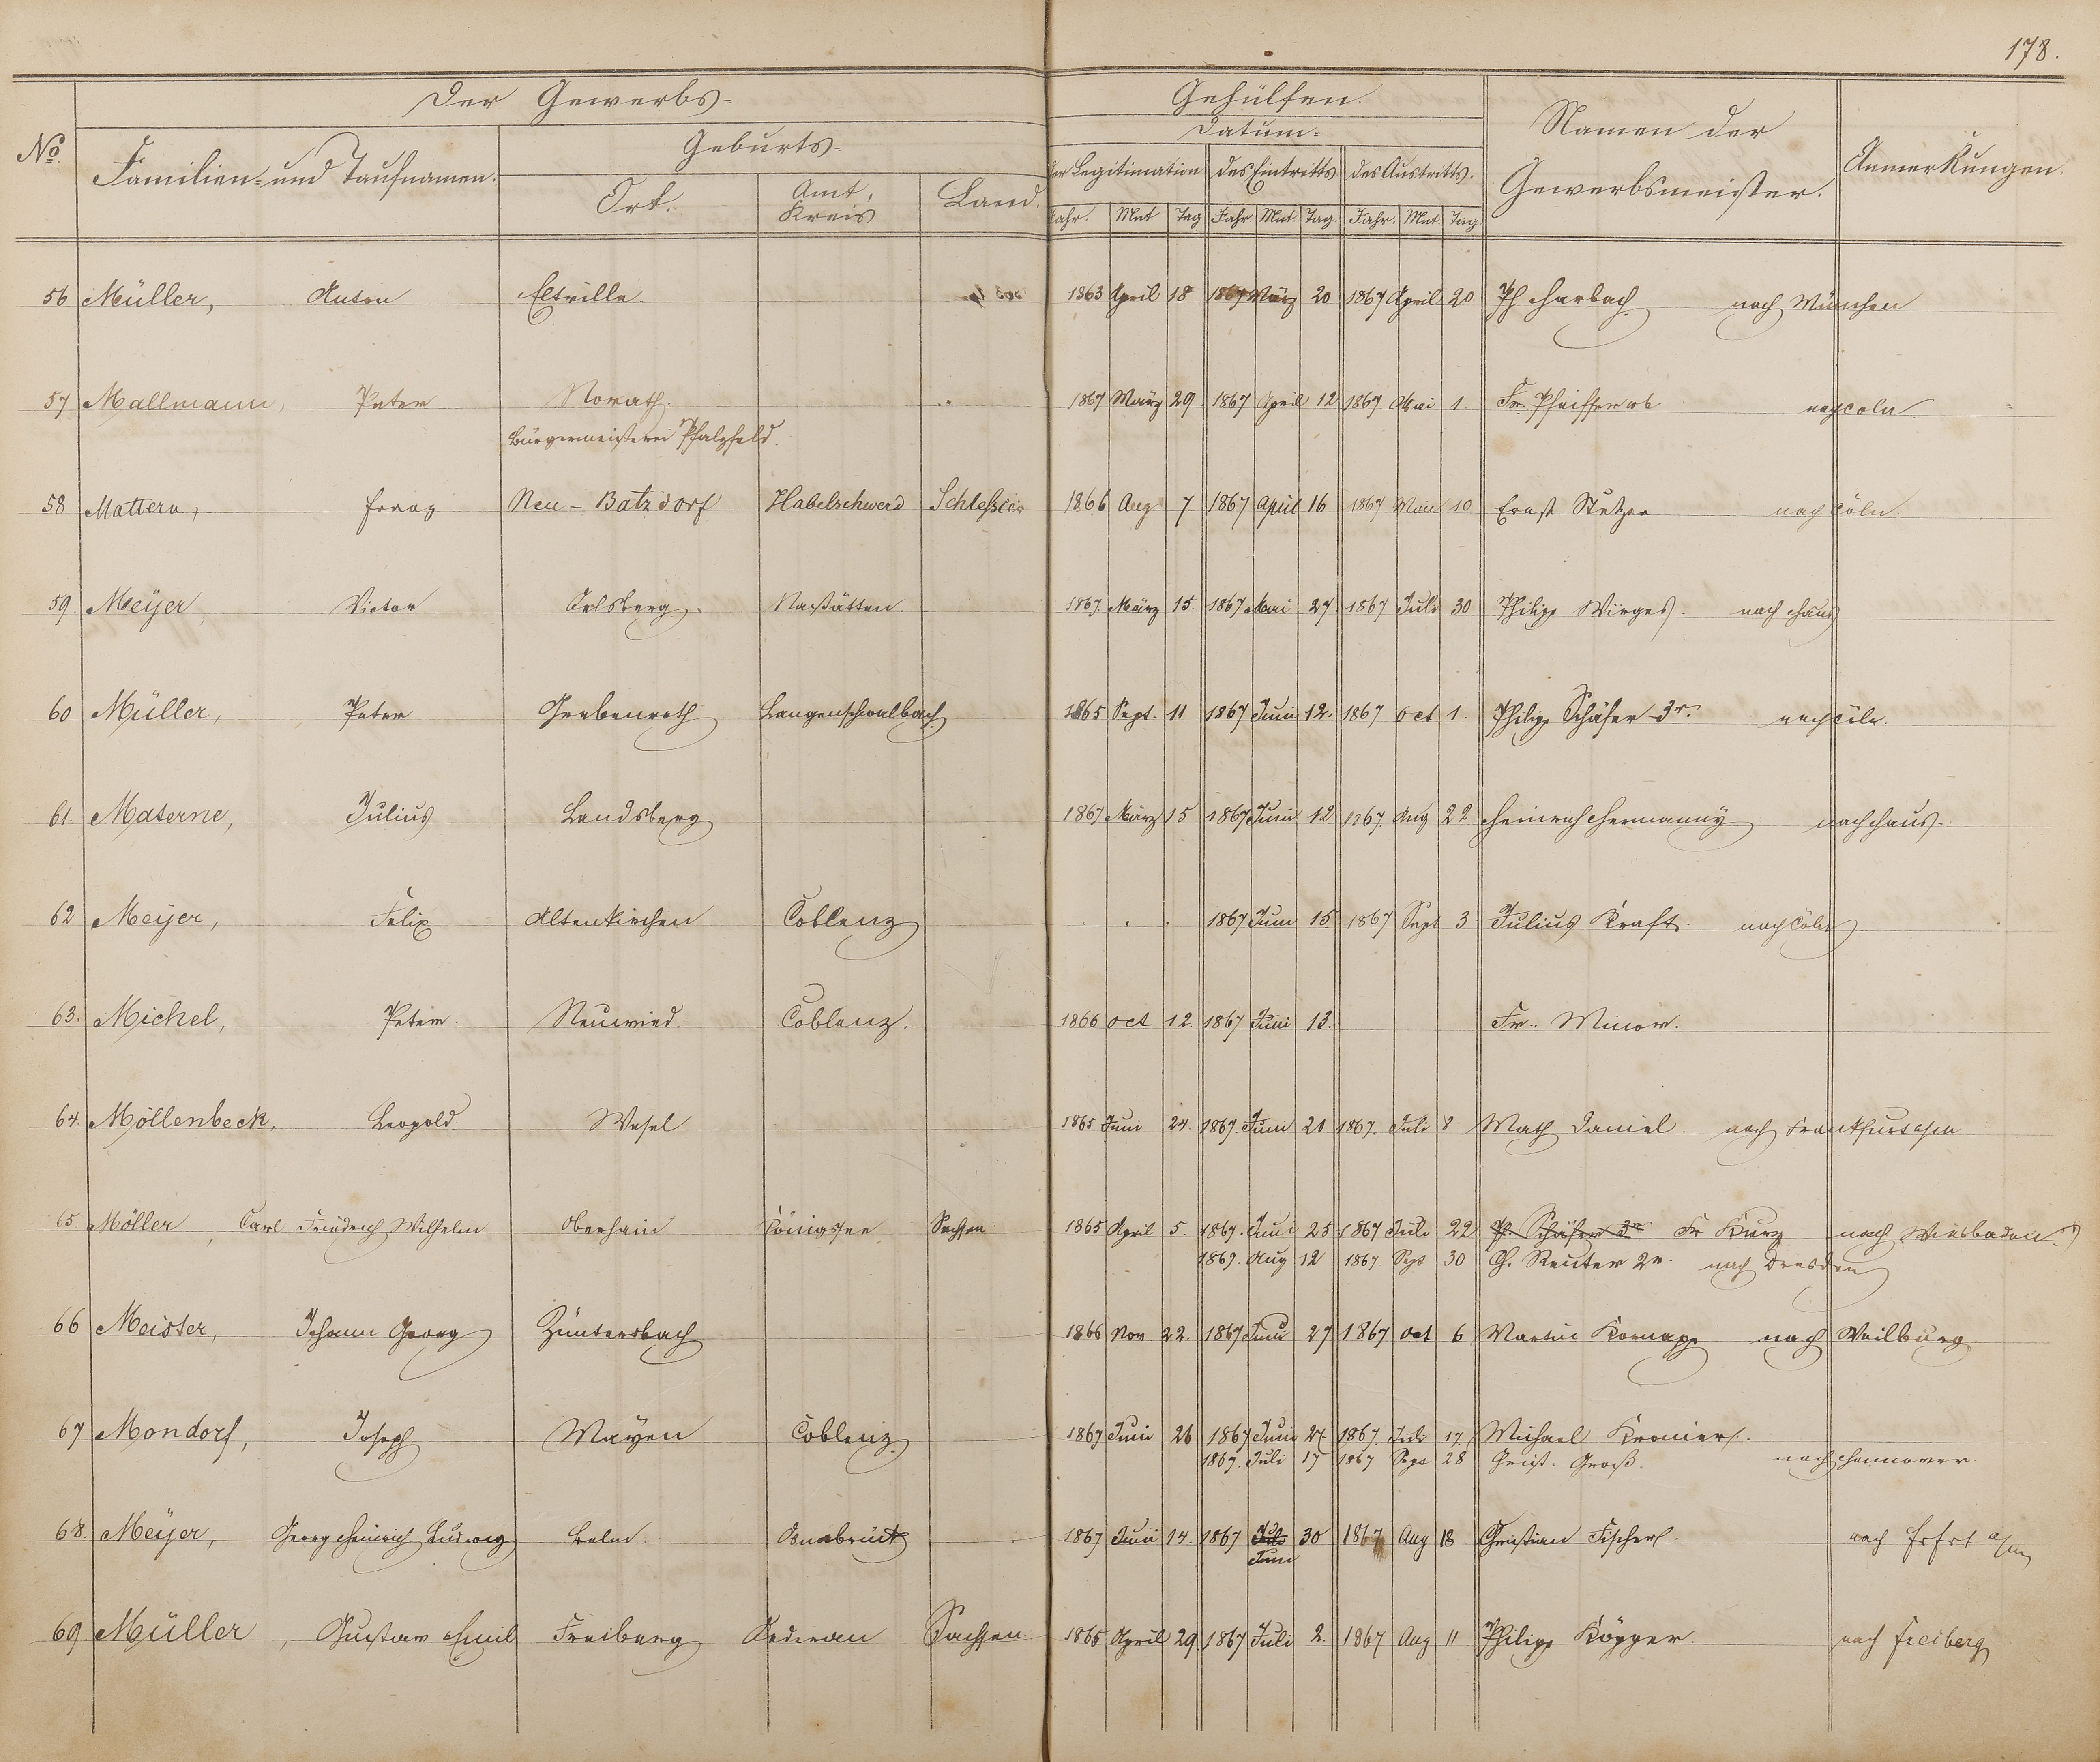 178.
Der Gewerbs- Gehülfen.
No. Familien- und Taufnamen. Geburts- Datum- Namen der Gewerbsmeister. Anmerkungen.
Ort. Amt, Kreis Land. der Legitimation des Eintritts des Austritts.
Jahr. Mnt Tag Jahr Mnt. Tag. Jahr. Mnt. Tag
56 Müller, Anton Eltville 1863 April 18 1867 März 20 1867 April 20 Ph Harbach nach München
57 Mallmann, Peter Norath. 1867 März 29 1867 April 12 1867 Mai 1 Fr. Pfeiffer nach Coln
Bürgermeisterei Pfalzfeld.
58 Mattern, Franz Neu-Batzdorf Habelschwerd Schleßien 1866 Aug 7 1867 April 16 1867 Mai 10 Ernst Stutzer nach Cöln.
59 Meÿer Victor Nastätten. 1867. März 15. 1867 Mai 27 1867 Juli 30 Philipp Wirges. nach Haus
60 Müller, Peter Grebenroth Langenschwalbach 1865 Sept. 11 1867 Juni 12. 1867 Oct 1. Philipp Schäfer 3r. nach Cöln.
61. Materne, Julius Landsberg 1867 März 15 1867 Juni 12 1867. Aug 22 Heinrich Hermanny nach Haus.
62 Meÿer, Felix Altenkirchen Coblenz 1867 Juni 15 1867 Sept 3 Julius Kraft. nach Cöln
63. Michel, Peter. Neuwied. Coblenz. 1866 Oct 12. 1867 Juni 13. Fr. Minor.
64. Möllenbeck, Leopold Wesel 1865 Juni 24. 1867. Juni 21 1867. Juli 8 Math Daniel. nach Frankfurt a/m
65 Möller, Carl Friedrich Wilhelm Oberhain Königsee, Sachsen 1865 April 5. 1867. Juni 25 1867 Juli 22 Ph. Schäfer 3r Fr Kurz nach Wiesbaden
1867. Aug 12 1867. Sept 30 Ch. Reuter 2r. nach Dresden
66 Meister, Johann Georg Züntersbach 1866 Nov 22. 1867 Juni 27 1867 Oct 6 Martin Kornapp nach Weilburg
67 Mondorf, Joseph Mayen Coblenz 1867 Juni 26 1867 Juni 27. 1867. Juli 17. Michael Kremer.
1867. Juli 17 1867 Sept 28 Christ. Groß. nach Hannover.
68. Meÿer, Georg Heinrich Ludwig Osnabrück 1867 Juni 14. 1867 Juli 30 1867 Aug 18 Christian Fischer. nach Frfrt a/m
Juni
69. Müller, Gustav Emil Freiburg Oederan Sachsen 1865 April 29 1867 Juli 2. 1867 Aug 11 Philipp Köpper. nach Freiberg